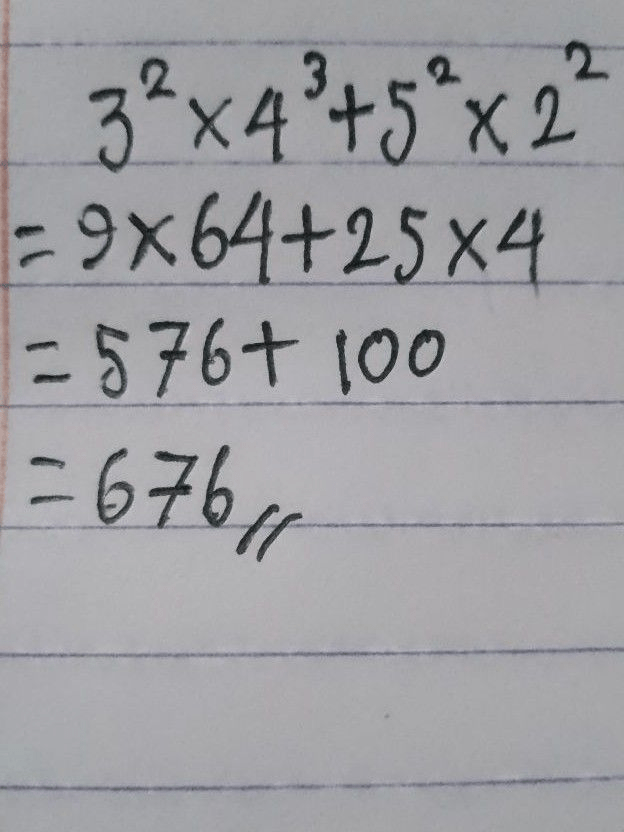 3² × 4³ + 5² × 2²
= 9 × 64 + 25 × 4
= 576 + 100
= 676 //